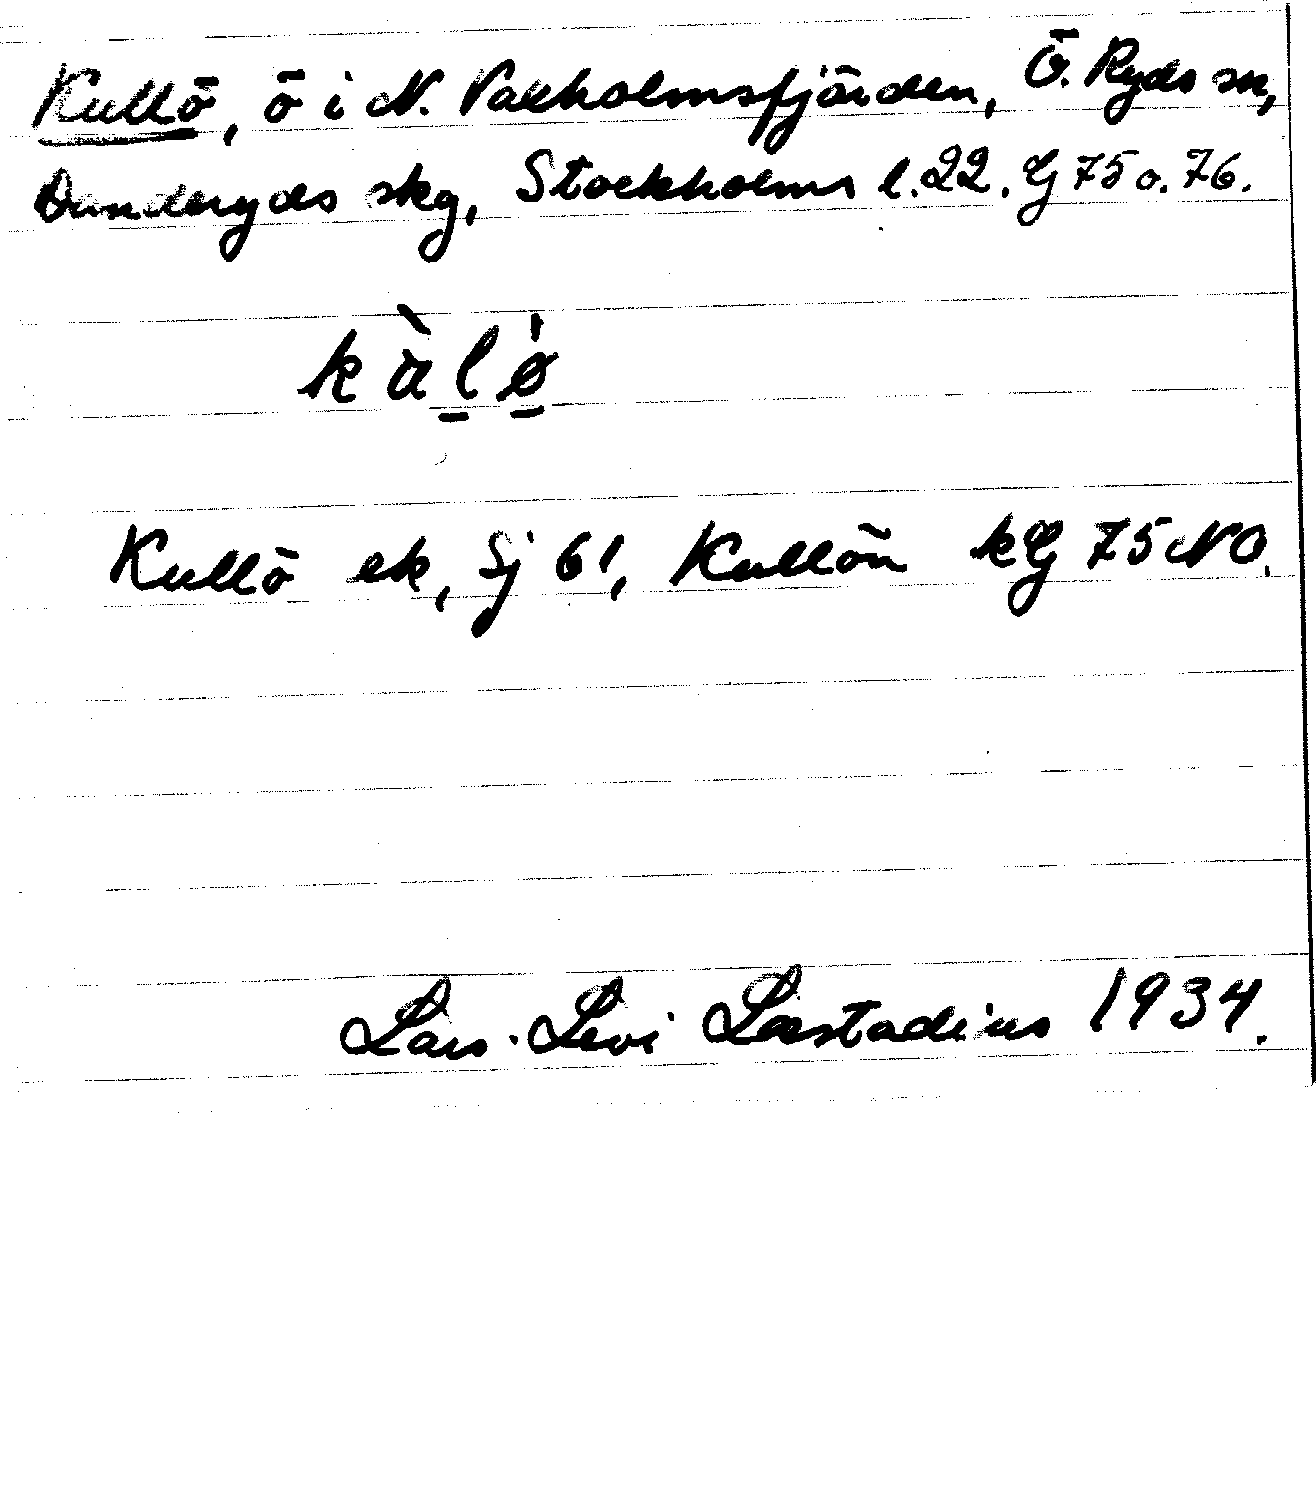 Kullö, ö i N. Vaxholmsfjärden, Ö. Ryds sn,
Danderyds skg, Stockholms l. 22. G 75 o. 76.
kàlø̀
Kullö ek, Sj 61, Kullön kG 75 NO.
Lars-Levi Læstadius 1934.